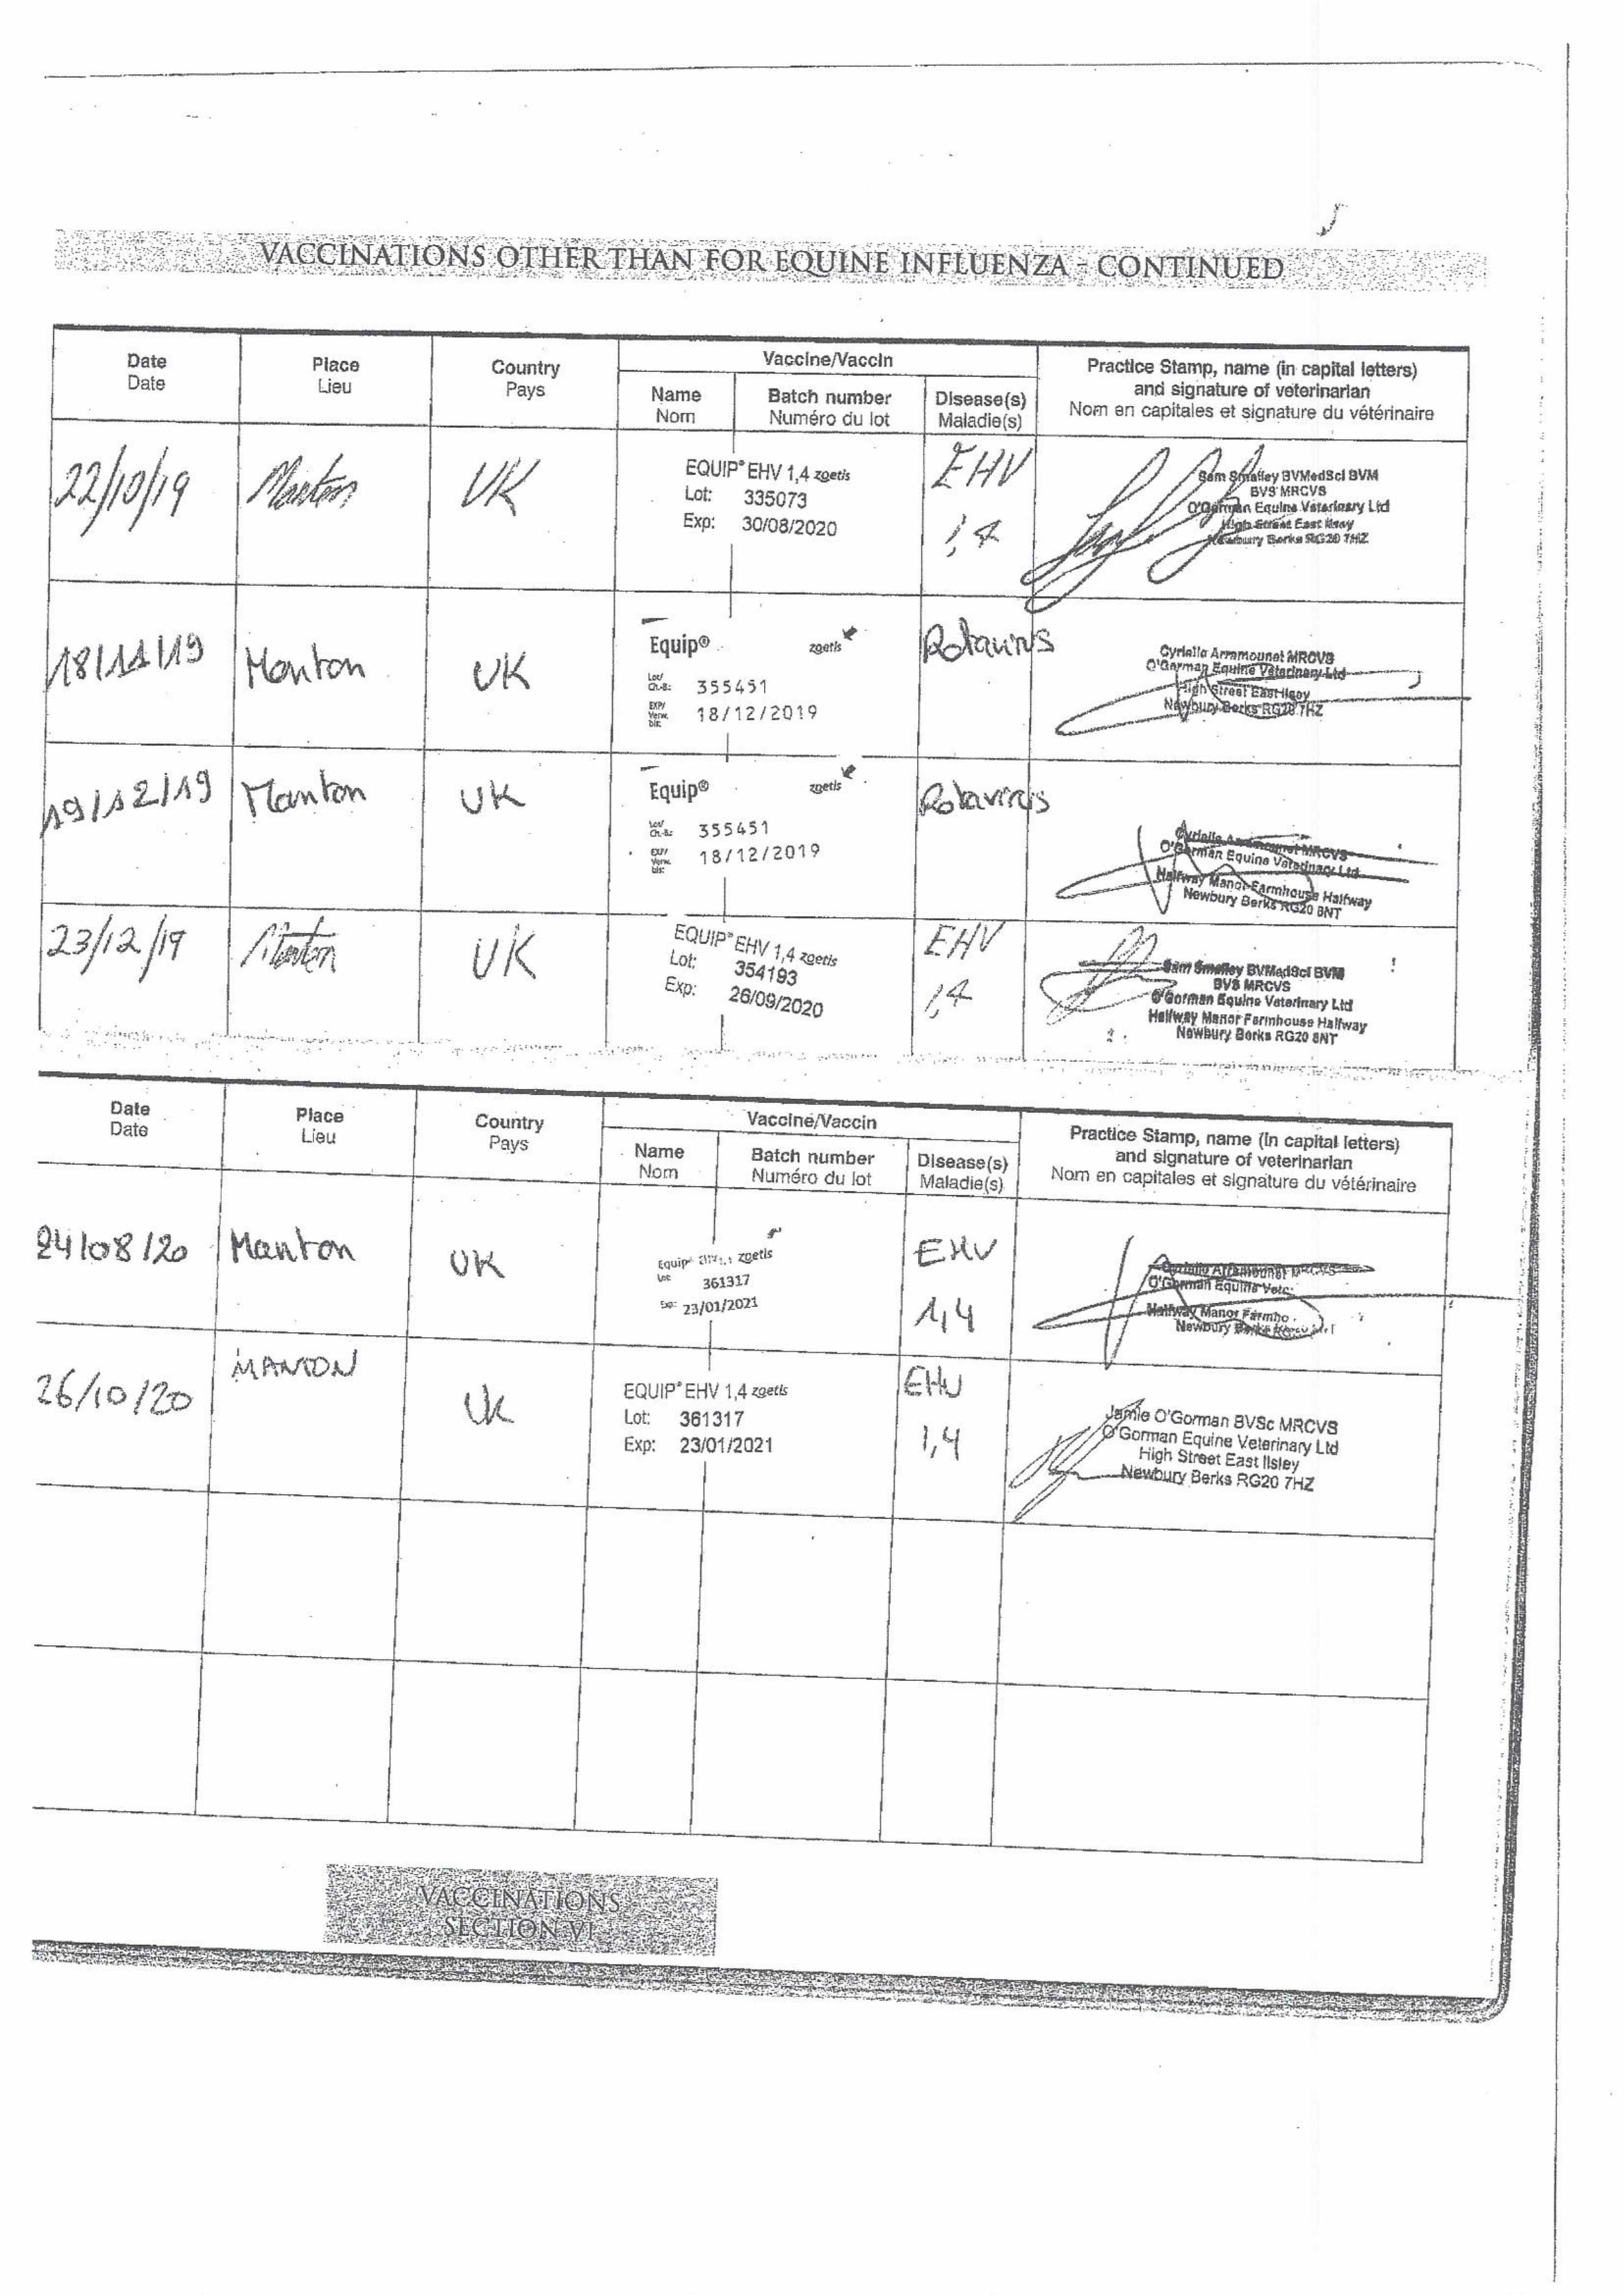 VACCINATIONS OTHER THAN FOR EQUINE INFLUENZA - CONTINUED
Date
Date
Place
Lieu
Country
Pays
Vaccine/Vaccin
Name
Nom
Batch number
Numéro du lot
Disease(s)
Maladie(s)
Practice Stamp, name (in capital letters)
and signature of veterinarian
Nom en capitales et signature du vétérinaire
22/10/19
Manton
UK
EQUIP® EHV 1,4 zoetis
Lot: 335073
Exp: 30/08/2020
EHV
1,4
Sam Smalley BVMedSci BVM
BVS MRCVS
O'Gorman Equine Veterinary Ltd
High Street East Ilsley
Newbury Berks RG20 7HZ
18/11/19
Manton
UK
Equip® zoetis
Lot/
Ch.-B.: 355451
EXP/
Verw.
bis: 18/12/2019
Rotavirus
Cyrielle Arramounet MRCVS
O'Gorman Equine Veterinary Ltd
High Street East Ilsley
Newbury Berks RG20 7HZ
19/12/19
Manton
UK
Equip® zoetis
Lot/
Ch.-B.: 355451
EXP/
Verw.
bis: 18/12/2019
Rotavirus
Cyrielle Arramounet MRCVS
O'Gorman Equine Veterinary Ltd
Halfway Manor Farmhouse Halfway
Newbury Berks RG20 8NT
23/12/19
Manton
UK
EQUIP® EHV 1,4 zoetis
Lot: 354193
Exp: 26/09/2020
EHV
1,4
Sam Smalley BVMedSci BVM
BVS MRCVS
O'Gorman Equine Veterinary Ltd
Halfway Manor Farmhouse Halfway
Newbury Berks RG20 8NT
Date
Date
Place
Lieu
Country
Pays
Vaccine/Vaccin
Name
Nom
Batch number
Numéro du lot
Disease(s)
Maladie(s)
Practice Stamp, name (in capital letters)
and signature of veterinarian
Nom en capitales et signature du vétérinaire
24/08/20
Manton
UK
Equip® zoetis
Lot: 361317
Exp: 23/01/2021
EHV
1,4
Cyrielle Arramounet MRCVS
O'Gorman Equine
Halfway Manor
Newbury
26/10/20
MANTON
UK
EQUIP® EHV 1,4 zoetis
Lot: 361317
Exp: 23/01/2021
EHV
1,4
Jamie O'Gorman BVSc MRCVS
O'Gorman Equine Veterinary Ltd
High Street East Ilsley
Newbury Berks RG20 7HZ
VACCINATIONS
SECTION VI